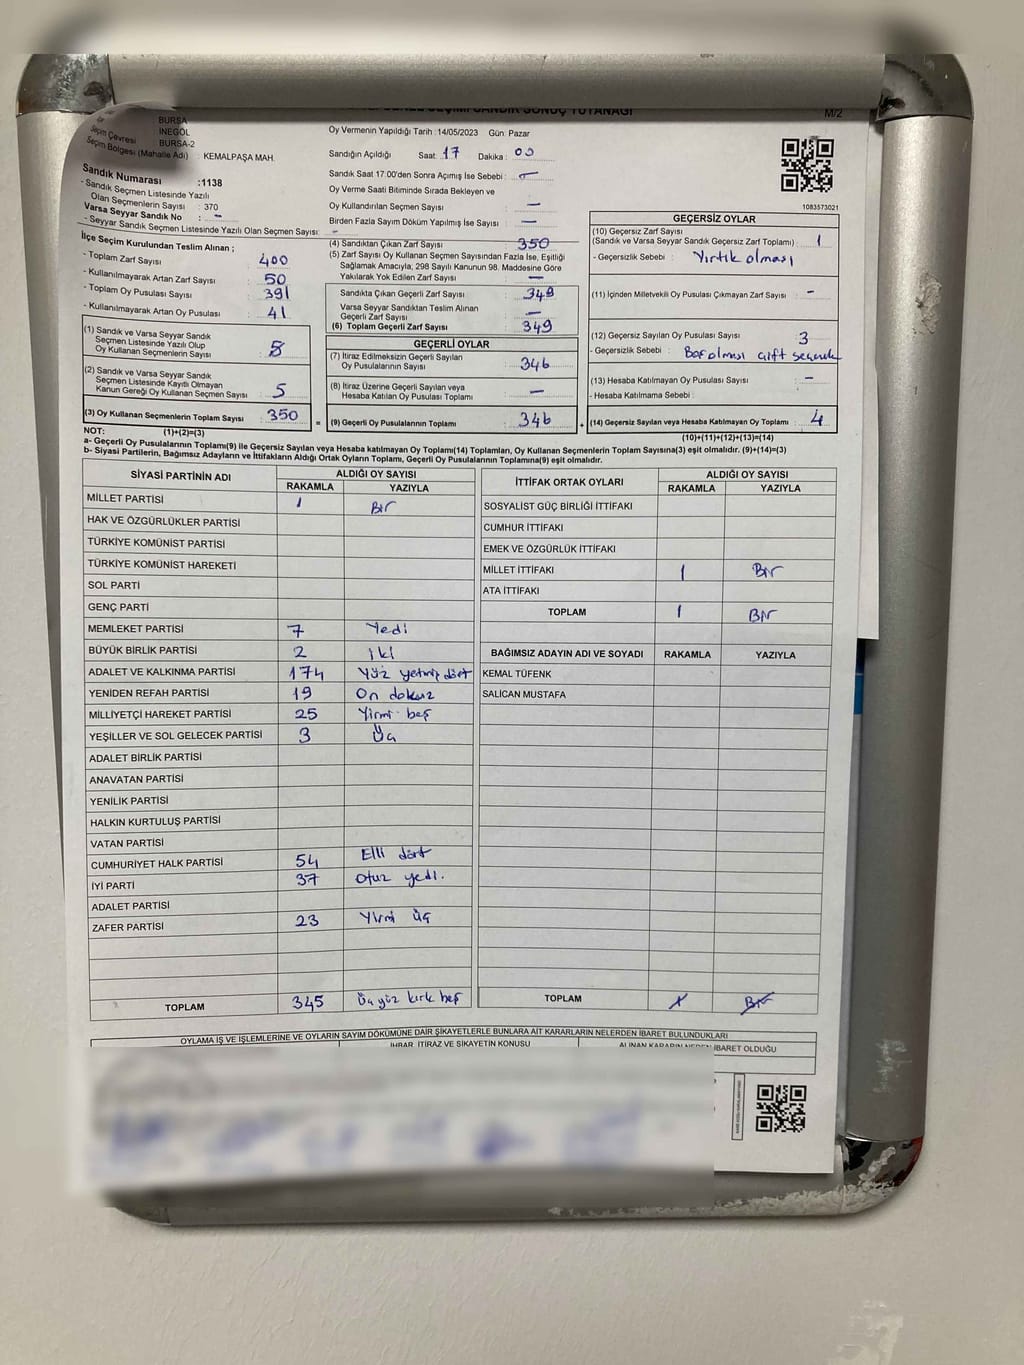 SEÇİMİ SANDIK SONUÇ TUTANAĞI
M/2
BURSA
İNEGÖL
Seçim Çevresi BURSA-2
Seçim Bölgesi (Mahalle Adı) : KEMALPAŞA MAH.
Sandık Numarası :1138
- Sandık Seçmen Listesinde Yazılı
Olan Seçmenlerin Sayısı : 370
Varsa Seyyar Sandık No : -
- Seyyar Sandık Seçmen Listesinde Yazılı Olan Seçmen Sayısı: -
Oy Vermenin Yapıldığı Tarih : 14/05/2023 Gün: Pazar
Sandığın Açıldığı Saat: 17 Dakika : 00
Sandık Saat 17:00'den Sonra Açımış İse Sebebi : -
Oy Verme Saati Bitiminde Sırada Bekleyen ve
Oy Kullandırılan Seçmen Sayısı : -
Birden Fazla Sayım Döküm Yapılmış İse Sayısı : -
1083573021
İlçe Seçim Kurulundan Teslim Alınan ;
- Toplam Zarf Sayısı : 400
- Kullanılmayarak Artan Zarf Sayısı : 50
- Toplam Oy Pusulası Sayısı : 391
- Kullanılmayarak Artan Oy Pusulası : 41
(1) Sandık ve Varsa Seyyar Sandık
Seçmen Listesinde Yazılı Olup
Oy Kullanan Seçmenlerin Sayısı :
(2) Sandık ve Varsa Seyyar Sandık
Seçmen Listesinde Kayıtlı Olmayan
Kanun Gereği Oy Kullanan Seçmen Sayısı : 5
(3) Oy Kullanan Seçmenlerin Toplam Sayısı : 350
(1)+(2)=(3)
(4) Sandıktan Çıkan Zarf Sayısı : 350
(5) Zarf Sayısı Oy Kullanan Seçmen Sayısından Fazla İse, Eşitliği
Sağlamak Amacıyla, 298 Sayılı Kanunun 98. Maddesine Göre
Yakılarak Yok Edilen Zarf Sayısı : -
Sandıkta Çıkan Geçerli Zarf Sayısı : 349
Varsa Seyyar Sandıktan Teslim Alınan
Geçerli Zarf Sayısı : -
(6) Toplam Geçerli Zarf Sayısı : 349
GEÇERLİ OYLAR
(7) İtiraz Edilmeksizin Geçerli Sayılan
Oy Pusulalarının Sayısı : 346
(8) İtiraz Üzerine Geçerli Sayılan veya
Hesaba Katılan Oy Pusulası Toplamı : -
= (9) Geçerli Oy Pusulalarının Toplamı : 346
GEÇERSİZ OYLAR
(10) Geçersiz Zarf Sayısı
(Sandık ve Varsa Seyyar Sandık Geçersiz Zarf Toplamı) : 1
- Geçersizlik Sebebi : Yırtık olması
(11) İçinden Milletvekili Oy Pusulası Çıkmayan Zarf Sayısı : -
(12) Geçersiz Sayılan Oy Pusulası Sayısı : 3
- Geçersizlik Sebebi : Boş olması çift
(13) Hesaba Katılmayan Oy Pusulası Sayısı : -
- Hesaba Katılmama Sebebi :
+ (14) Geçersiz Sayılan veya Hesaba Katılmayan Oy Toplamı : 4
(10)+(11)+(12)+(13)=(14)
NOT:
a- Geçerli Oy Pusulalarının Toplamı(9) ile Geçersiz Sayılan veya Hesaba katılmayan Oy Toplam(14) Toplamları, Oy Kullanan Seçmenlerin Toplam Sayısına(3) eşit olmalıdır. (9)+(14)=(3)
b- Siyasi Partilerin, Bağımsız Adayların ve İttifakların Aldığı Ortak Oyların Toplamı, Geçerli Oy Pusulalarının Toplamına(9) eşit olmalıdır.
SİYASİ PARTİNİN ADI ALDIĞI OY SAYISI
RAKAMLA YAZIYLA
MİLLET PARTİSİ 1 Bir
HAK VE ÖZGÜRLÜKLER PARTİSİ
TÜRKİYE KOMÜNİST PARTİSİ
TÜRKİYE KOMÜNİST HAREKETİ
SOL PARTİ
GENÇ PARTİ
MEMLEKET PARTİSİ 7 Yedi
BÜYÜK BİRLİK PARTİSİ 2 iki
ADALET VE KALKINMA PARTİSİ 174 Yüz yetmiş dört
YENİDEN REFAH PARTİSİ 19 On dokuz
MİLLİYETÇİ HAREKET PARTİSİ 25 Yirmi beş
YEŞİLLER VE SOL GELECEK PARTİSİ 3 Üç
ADALET BİRLİK PARTİSİ
ANAVATAN PARTİSİ
YENİLİK PARTİSİ
HALKIN KURTULUŞ PARTİSİ
VATAN PARTİSİ
CUMHURİYET HALK PARTİSİ 54 Elli dört
İYİ PARTİ 37 Otuz yedi.
ADALET PARTİSİ
ZAFER PARTİSİ 23 Yirmi üç
TOPLAM 345 Üç yüz kırk beş
İTTİFAK ORTAK OYLARI ALDIĞI OY SAYISI
RAKAMLA YAZIYLA
SOSYALİST GÜÇ BİRLİĞİ İTTİFAKI
CUMHUR İTTİFAKI
EMEK VE ÖZGÜRLÜK İTTİFAKI
MİLLET İTTİFAKI 1 Bir
ATA İTTİFAKI
TOPLAM 1 Bir
BAĞIMSIZ ADAYIN ADI VE SOYADI RAKAMLA YAZIYLA
KEMAL TÜFENK
SALİCAN MUSTAFA
TOPLAM 1 Bir
OYLAMA İŞ VE İŞLEMLERİNE VE OYLARIN SAYIM DÖKÜMÜNE DAİR ŞİKAYETLERLE BUNLARA AİT KARARLARIN NELERDEN İBARET BULUNDUKLARI
İHBAR, İTİRAZ VE ŞİKAYETİN KONUSU ALINAN KARARIN NEDEN İBARET OLDUĞU